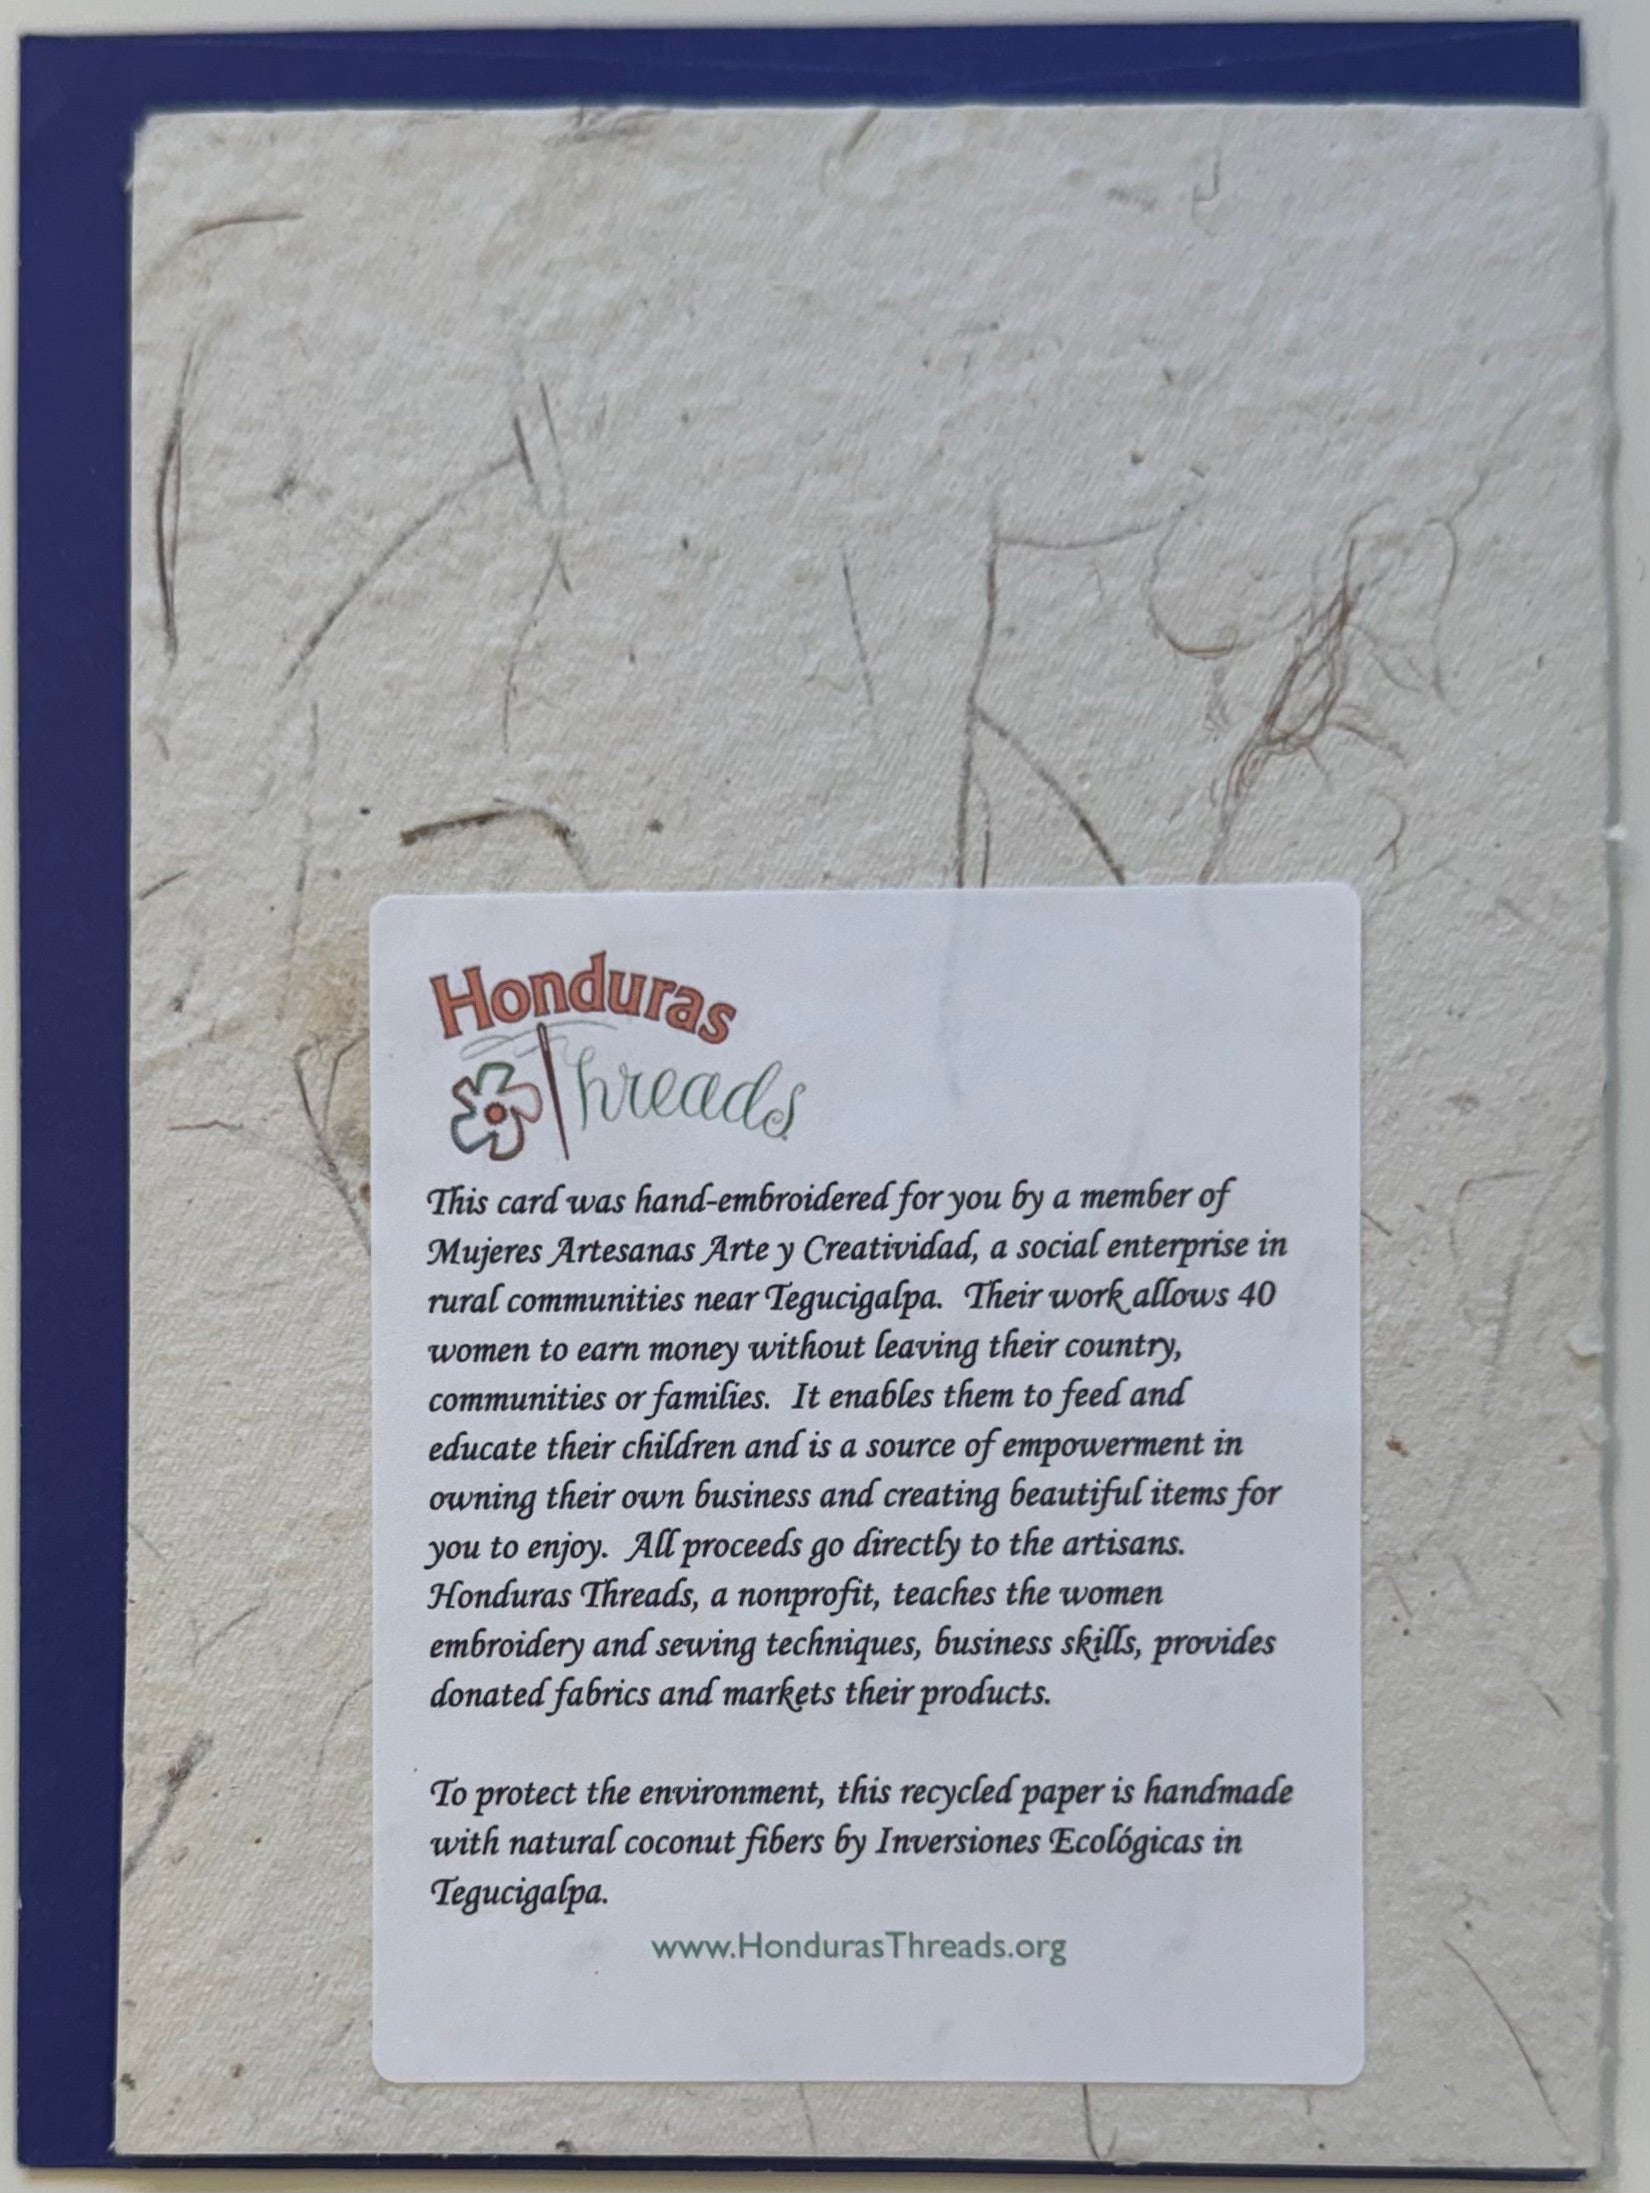 Honduras
Threads
This card was hand-embroidered for you by a member of
Mujeres Artesanas Arte y Creatividad, a social enterprise in
rural communities near Tegucigalpa. Their work allows 40
women to earn money without leaving their country,
communities or families. It enables them to feed and
educate their children and is a source of empowerment in
owning their own business and creating beautiful items for
you to enjoy. All proceeds go directly to the artisans.
Honduras Threads, a nonprofit, teaches the women
embroidery and sewing techniques, business skills, provides
donated fabrics and markets their products.
To protect the environment, this recycled paper is handmade
with natural coconut fibers by Inversiones Ecológicas in
Tegucigalpa.
www.HondurasThreads.org